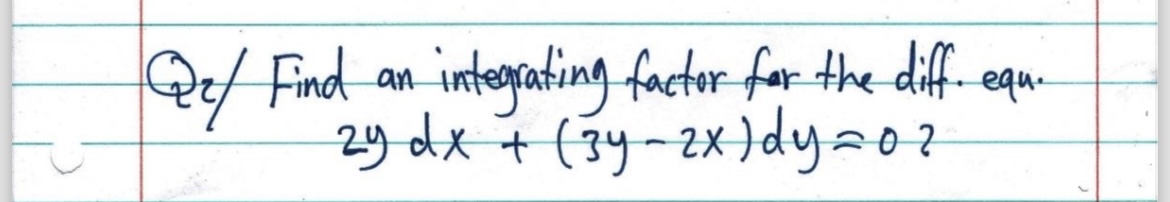 Q2/ Find an integrating factor for the diff. equ.
2y dx + (3y - 2x) dy = 0 ?